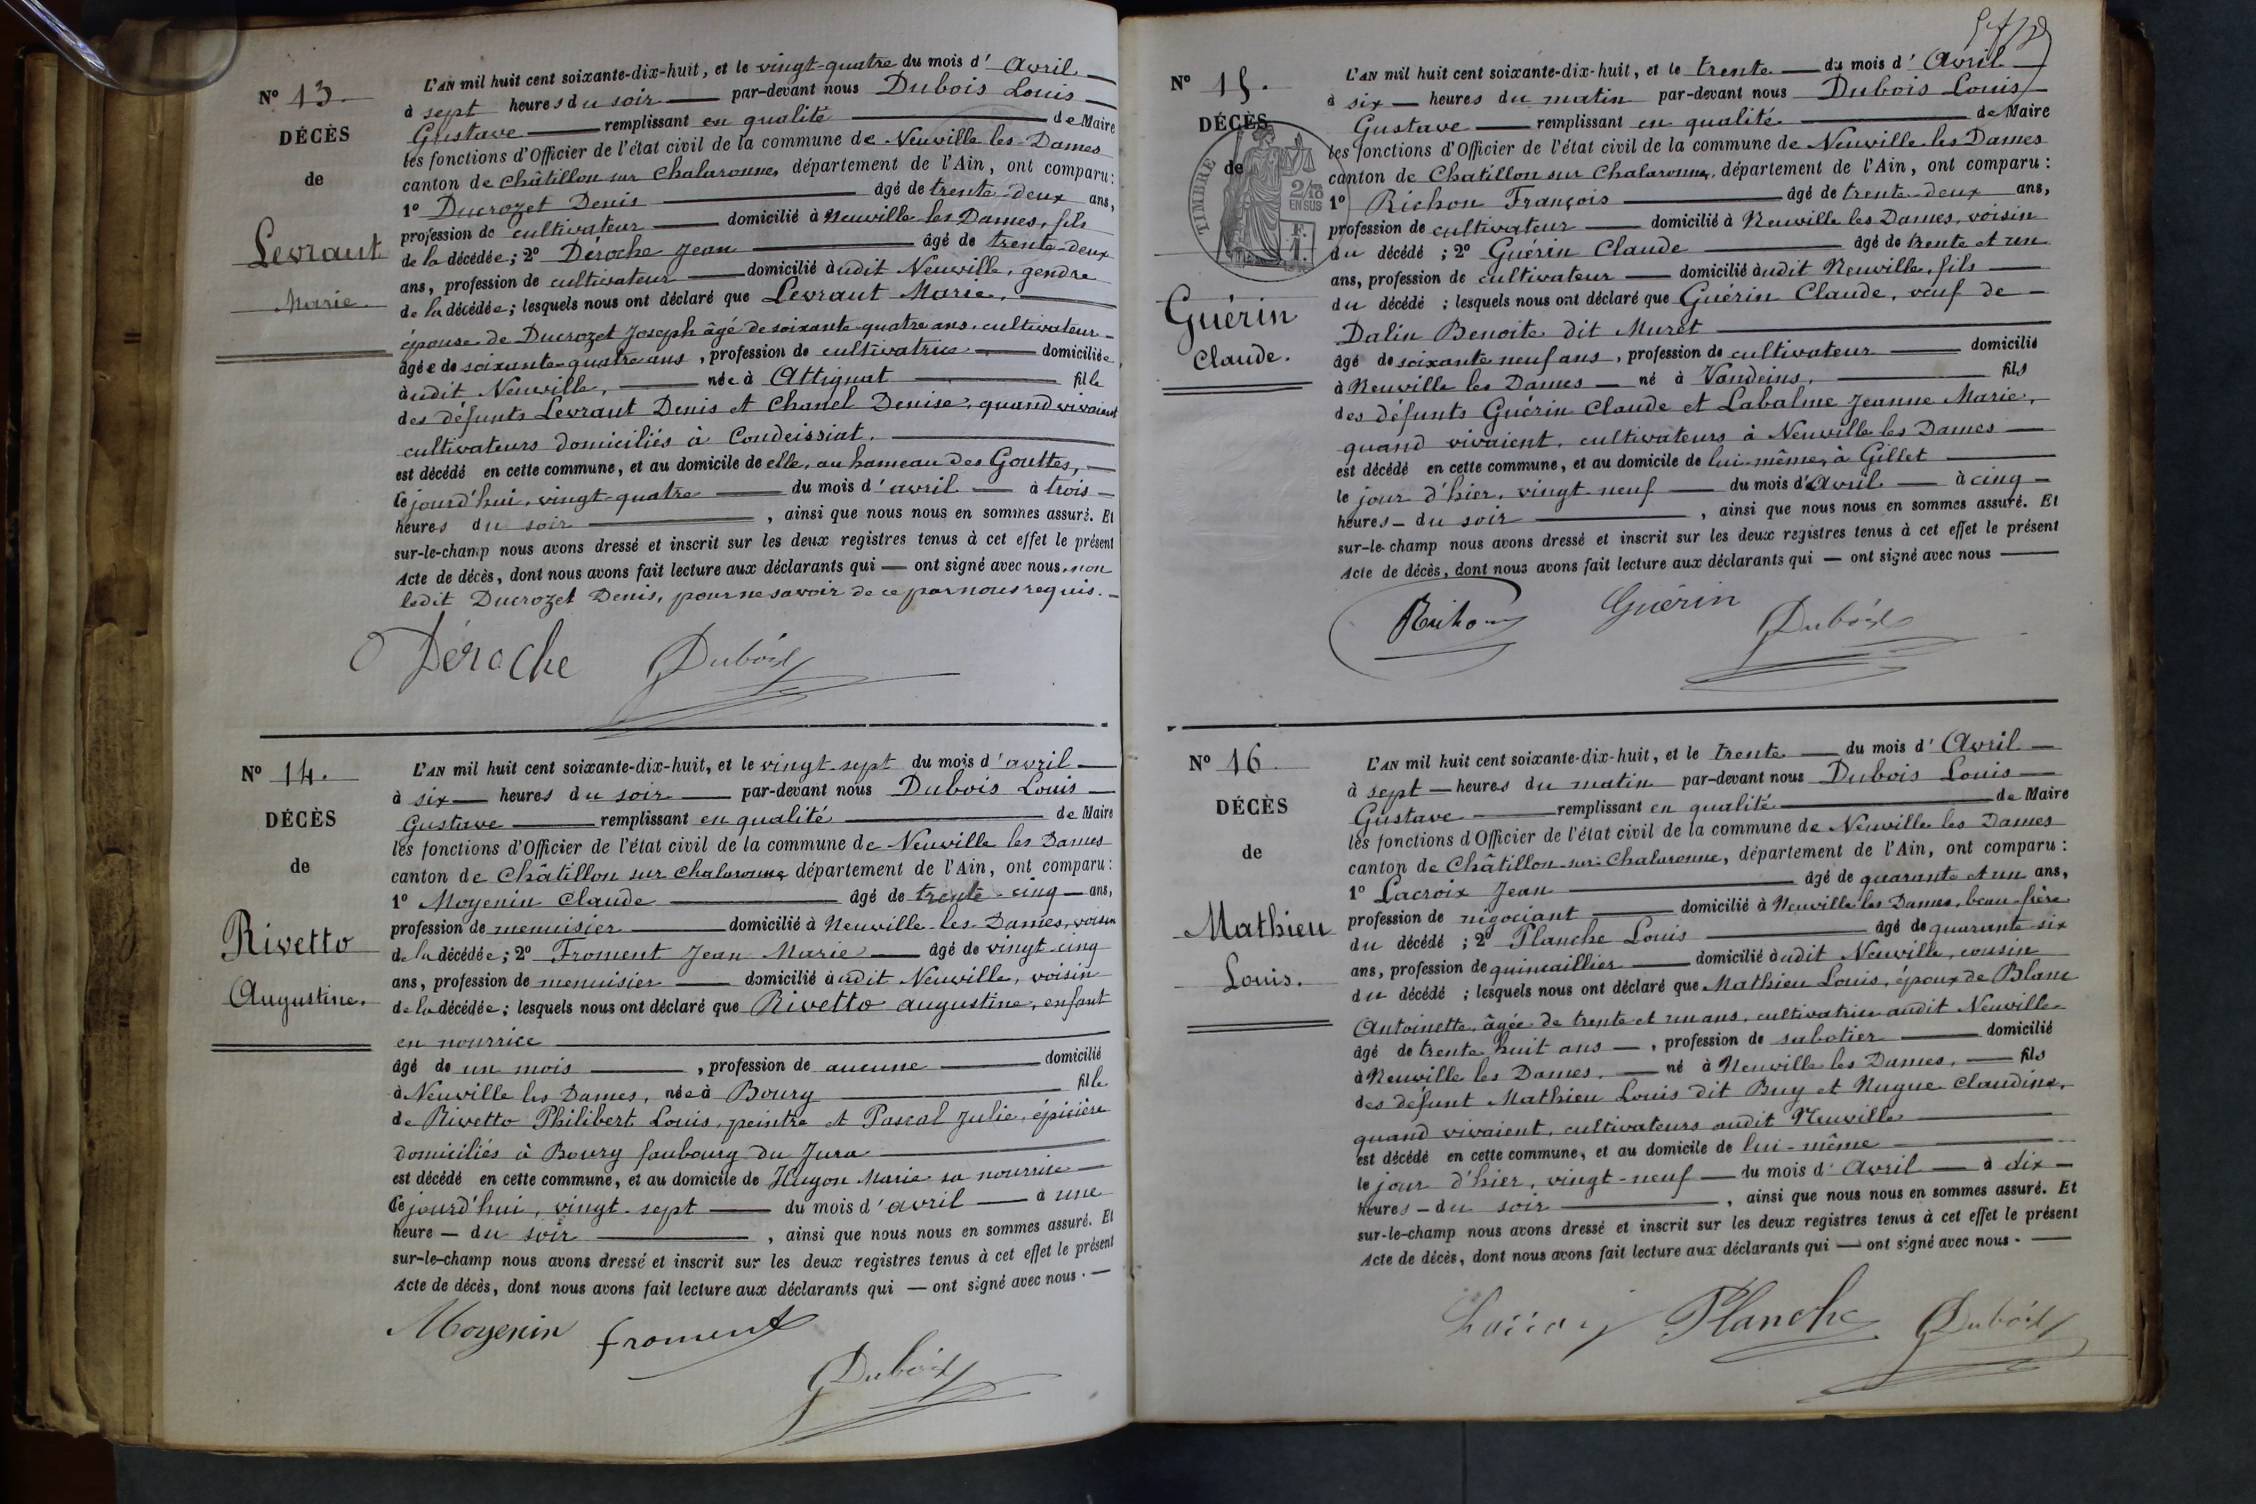 N° 13.
DÉCÈS
de
Levraut
Marie.
L'AN mil huit cent soixante-dix-huit, et le vingt-quatre du mois d' Avril
à sept heures du soir par-devant nous Dubois Louis
Gustave remplissant en qualité de Maire
les fonctions d'Officier de l'état civil de la commune de Neuville les Dames
canton de Châtillon sur Chalaronne, département de l'Ain, ont comparu:
1° Ducrozet Denis âgé de trente-deux ans,
profession de cultivateur domicilié à Neuville les Dames, fils
de la décédée; 2° Déroche Jean âgé de trente-deux
ans, profession de cultivateur domicilié audit Neuville, gendre
de la décédée; lesquels nous ont déclaré que Levraut Marie,
épouse de Ducrozet Joseph âgé de soixante quatre ans, cultivateur
âgée de soixante-quatre ans, profession de cultivatrice domiciliée
audit Neuville, née à Attignat fille
des défunts Levraut Denis et Chanel Denise, quand vivaient
cultivateurs domiciliés à Condeissiat.
est décédé en cette commune, et au domicile de elle, au hameau des Gouttes,
cejourd'hui, vingt-quatre du mois d'avril à trois
heures du soir, ainsi que nous nous en sommes assuré. Et
sur-le-champ nous avons dressé et inscrit sur les deux registres tenus à cet effet le présent
Acte de décès, dont nous avons fait lecture aux déclarants qui — ont signé avec nous, non
ledit Ducrozet Denis, pour ne savoir de ce par nous requis.
Déroche Dubois
N° 14.
DÉCÈS
de
Rivetto
Augustine.
L'AN mil huit cent soixante-dix-huit, et le vingt-sept du mois d'avril
à six heures du soir par-devant nous Dubois Louis
Gustave remplissant en qualité de Maire
les fonctions d'Officier de l'état civil de la commune de Neuville les Dames
canton de Châtillon sur Chalaronne département de l'Ain, ont comparu:
1° Moyenin Claude âgé de trente-cinq ans,
profession de menuisier domicilié à Neuville-les-Dames, voisin
de la décédée; 2° Froment Jean Marie âgé de vingt-cinq
ans, profession de menuisier domicilié audit Neuville, voisin
de la décédée; lesquels nous ont déclaré que Rivetto Augustine, enfant
en nourrice
âgé de un mois, profession de aucune domicilié
à Neuville les Dames, née à Bourg fille
de Rivetto Philibert Louis, peintre et Pascal Julie, épicière
domiciliés à Bourg faubourg du Jura
est décédé en cette commune, et au domicile de Hugon Marie sa nourrice
cejourd'hui, vingt-sept du mois d'avril à une
heure — du soir, ainsi que nous nous en sommes assuré. Et
sur-le-champ nous avons dressé et inscrit sur les deux registres tenus à cet effet le présent
Acte de décès, dont nous avons fait lecture aux déclarants qui — ont signé avec nous.
Moyenin froment
Dubois
N° 15.
DÉCÈS
de
TIMBRE
2/10 EN SUS
F. 1.
Guérin
Claude.
L'AN mil huit cent soixante-dix-huit, et le trente du mois d' Avril
à six — heures du matin par-devant nous Dubois Louis
Gustave remplissant en qualité de Maire
les fonctions d'Officier de l'état civil de la commune de Neuville les Dames
canton de Chatillon sur Chalaronne, département de l'Ain, ont comparu:
1° Richon François âgé de trente-deux ans,
profession de cultivateur domicilié à Neuville les Dames, voisin
du décédé; 2° Guérin Claude âgé de trente et un
ans, profession de cultivateur domicilié audit Neuville, fils
du décédé; lesquels nous ont déclaré que Guérin Claude, veuf de
Dalin Benoite dit Muret
âgé de soixante neuf ans, profession de cultivateur domicilié
à Neuville les Dames — né à Vandeins, fils
des défunts Guérin Claude et Labalme Jeanne Marie,
quand vivaient, cultivateurs à Neuville les Dames
est décédé en cette commune, et au domicile de lui-même, à Gillet
le jour d'hier, vingt-neuf du mois d'Avril à cinq
heures — du soir, ainsi que nous nous en sommes assuré. Et
sur-le-champ nous avons dressé et inscrit sur les deux registres tenus à cet effet le présent
Acte de décès, dont nous avons fait lecture aux déclarants qui — ont signé avec nous
Richon Guérin Dubois
N° 16
DÉCÈS
de
Mathieu
Louis.
L'AN mil huit cent soixante-dix-huit, et le trente du mois d' Avril
à sept — heures du matin par-devant nous Dubois Louis
Gustave remplissant en qualité de Maire
les fonctions d'Officier de l'état civil de la commune de Neuville les Dames
canton de Châtillon-sur-Chalaronne, département de l'Ain, ont comparu:
1° Lacroix Jean âgé de quarante et un ans,
profession de négociant domicilié à Neuville les Dames, beau-frère
du décédé; 2° Planche Louis âgé de quarante six
ans, profession de quincaillier domicilié audit Neuville, cousin
du décédé; lesquels nous ont déclaré que Mathieu Louis, époux de Blanc
Antoinette, âgée de trente et un ans, cultivatrice audit Neuville
âgé de trente huit ans —, profession de sabotier domicilié
à Neuville les Dames, — né à Neuville les Dames, — fils
des défunt Mathieu Louis dit Buy et Nugue Claudine,
quand vivaient, cultivateurs audit Neuville
est décédé en cette commune, et au domicile de lui-même
le jour d'hier, vingt-neuf du mois d' Avril à dix
heures — du soir, ainsi que nous nous en sommes assuré. Et
sur-le-champ nous avons dressé et inscrit sur les deux registres tenus à cet effet le présent
Acte de décès, dont nous avons fait lecture aux déclarants qui — ont signé avec nous.
Lacroix Planche Dubois